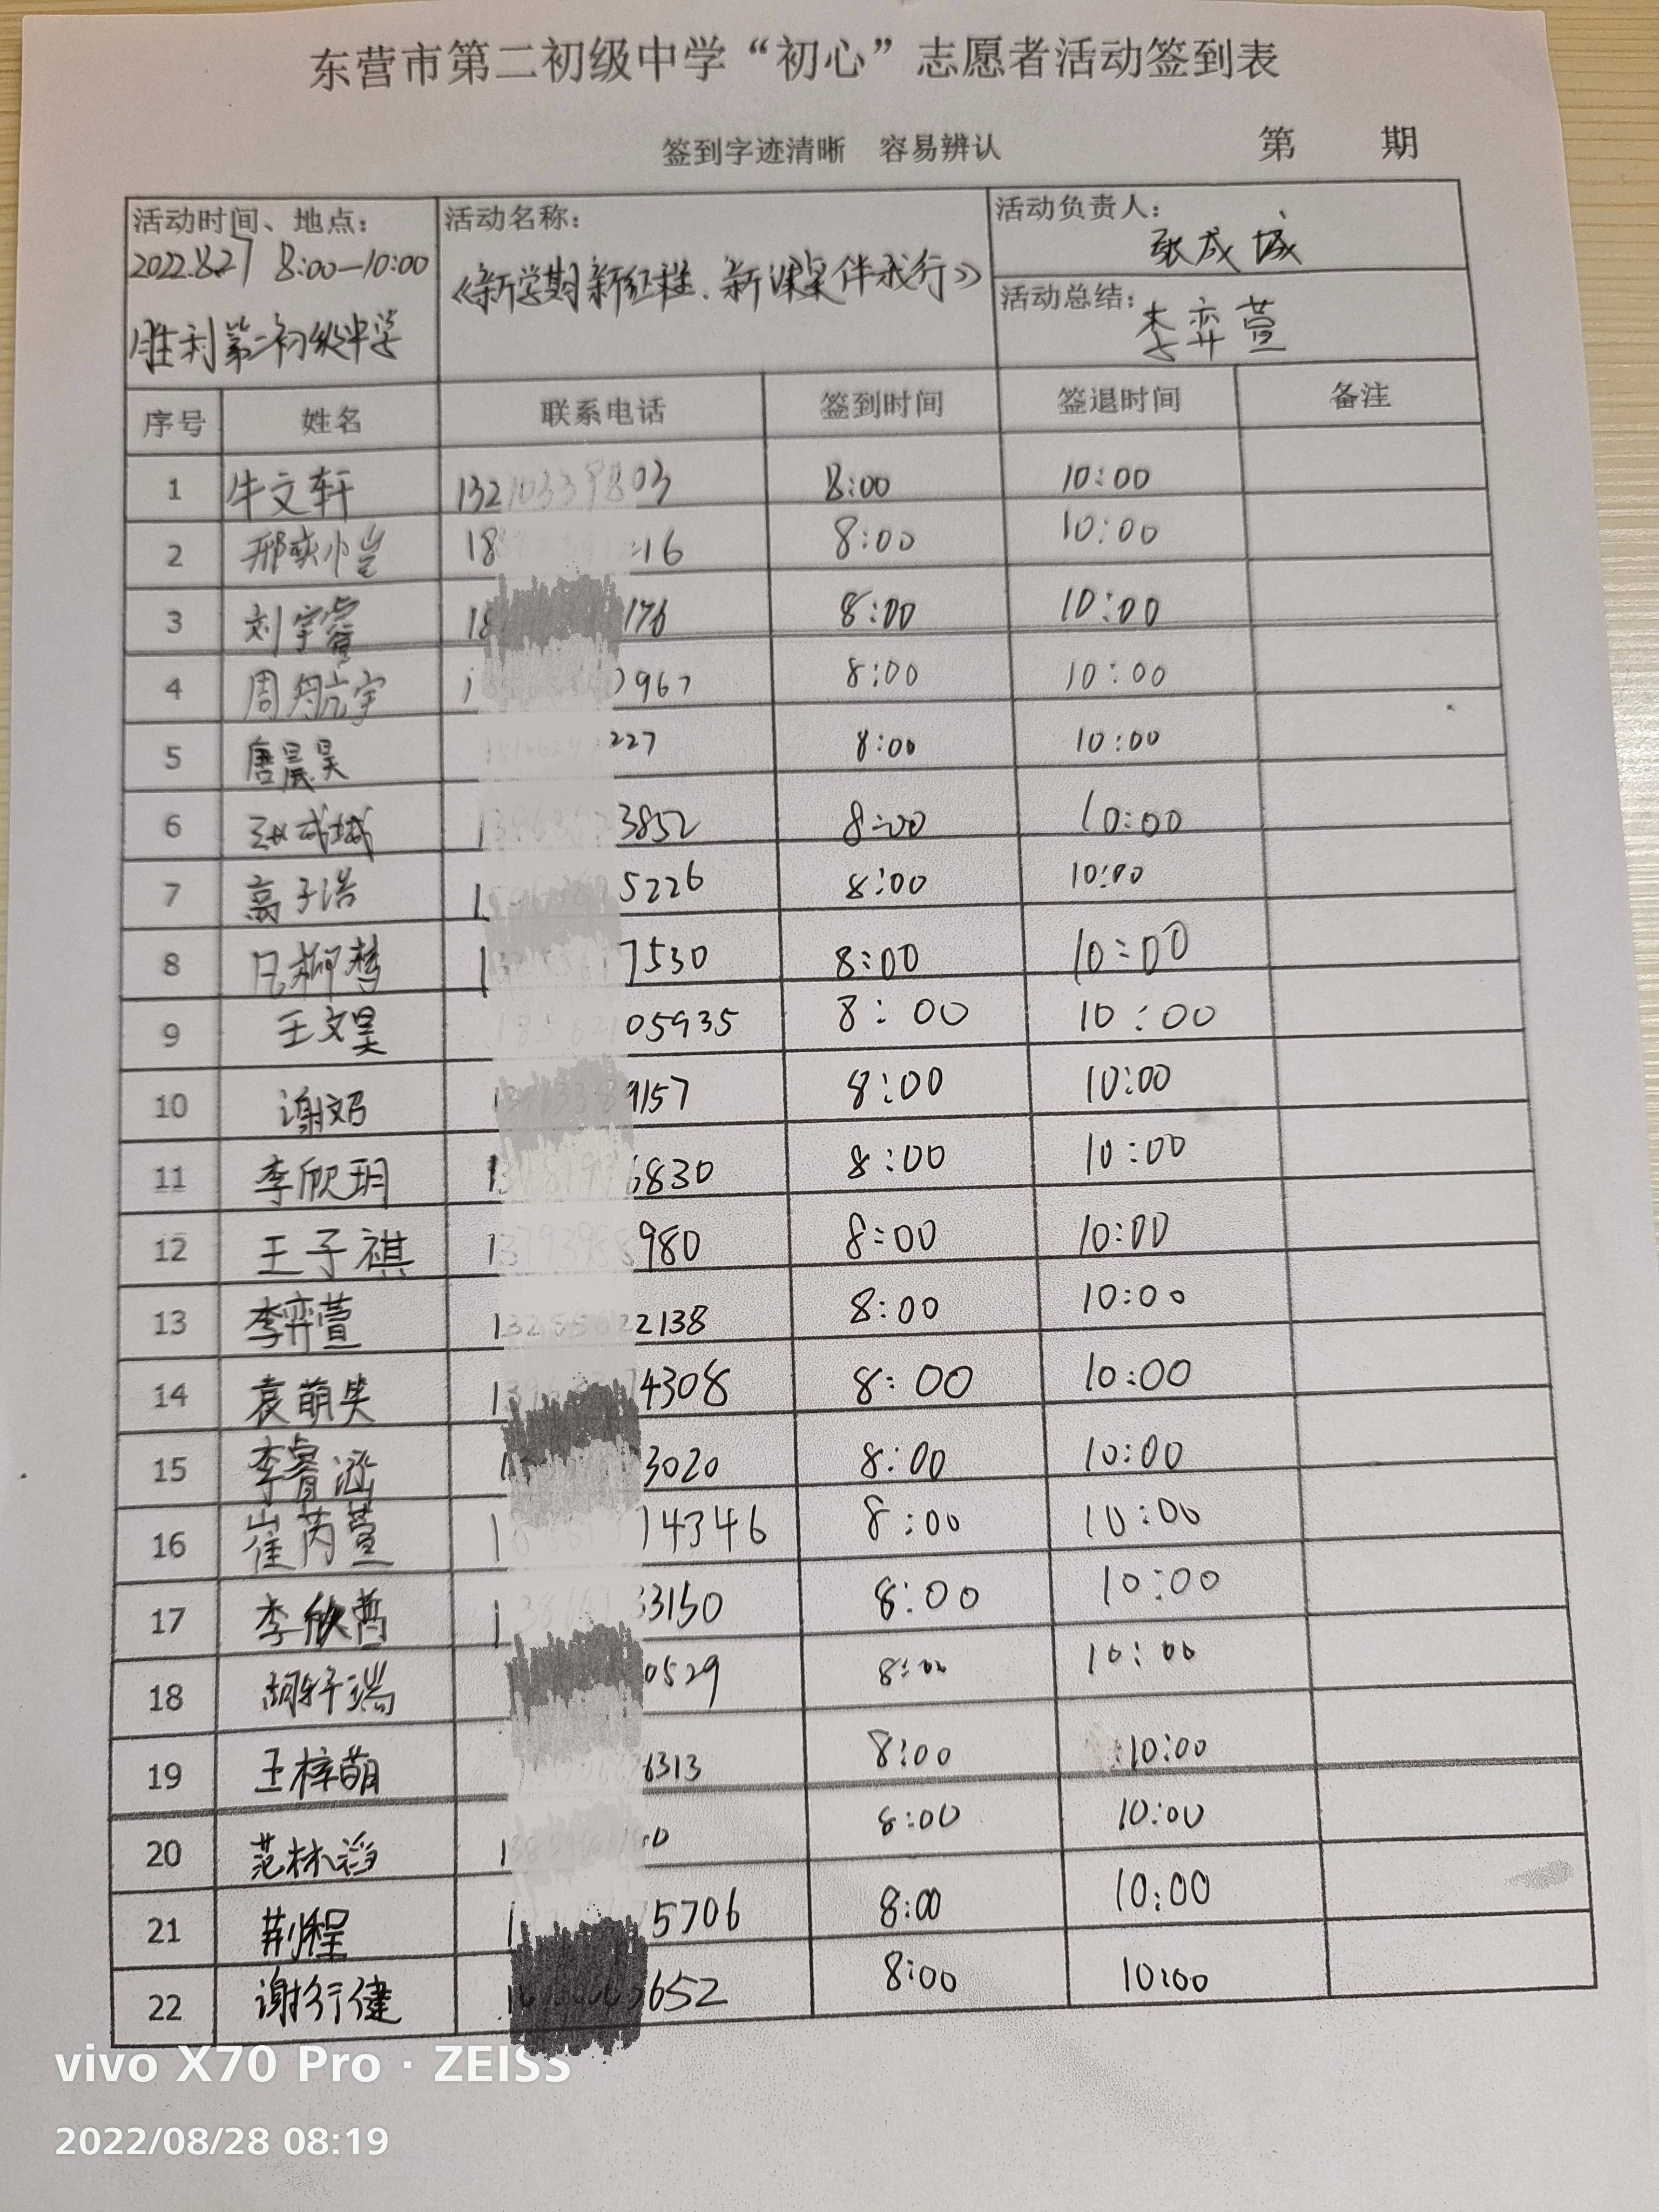 东营市第二初级中学“初心”志愿者活动签到表
签到字迹清晰 容易辨认 第 期
活动时间、地点： 活动名称： 活动负责人：
2022.8.27 8:00—10:00 《新学期新征程、新课桌伴我行》 张成城
胜利第二初级中学 活动总结： 李弈萱
序号 姓名 联系电话 签到时间 签退时间 备注
1 牛文轩 132 03 8:00 10:00
2 18 16 8:00 10:00
3 刘宇睿 18 176 8:00 10:00
4 周航宇 1 967 8:00 10:00
5 唐晨昊 227 8:00 10:00
6 张成城 1 3852 8:00 10:00
7 高子浩 1 5226 8:00 10:00
8 1 7530 8:00 10:00
9 王文昊 05935 8:00 10:00
10 1 9157 8:00 10:00
11 李欣玥 1 6830 8:00 10:00
12 王子祺 1 980 8:00 10:00
13 李弈萱 1 2138 8:00 10:00
14 袁萌 1 4308 8:00 10:00
15 李睿涵 1 3020 8:00 10:00
16 崔芮萱 1 14346 8:00 10:00
17 李欣 1 3150 8:00 10:00
18 胡轩瑞 0529 8:00 10:00
19 王梓萌 6313 8:00 10:00
20 范林 1 0 8:00 10:00
21 荆程 1 5706 8:00 10:00
22 谢行健 652 8:00 10:00
vivo X70 Pro · ZEISS
2022/08/28 08:19